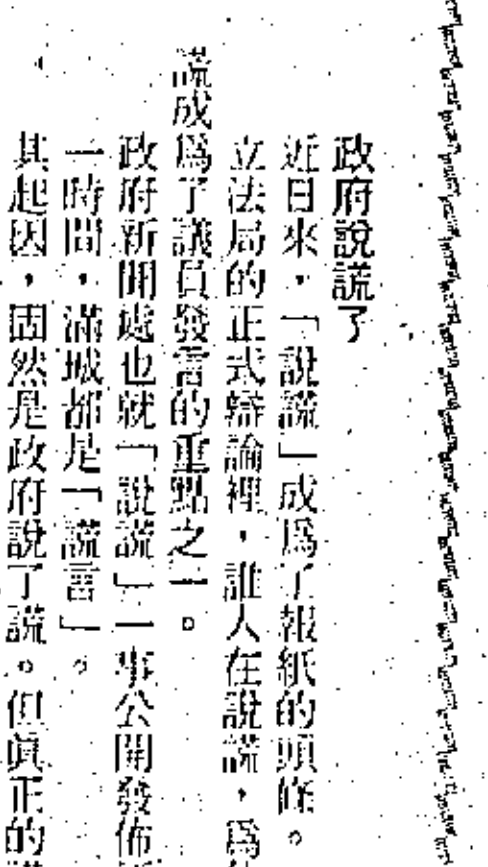 政府說謊了
近日來，「說謊」成爲了報紙的頭條。
立法局的正式辯論裡，誰人在說謊，爲
謊成爲了議員發言的重點之一。
政府新聞處也就「說謊」一事公開發佈
一時間，滿城都是「謊言」。
其起因，固然是政府說了謊。但眞正的